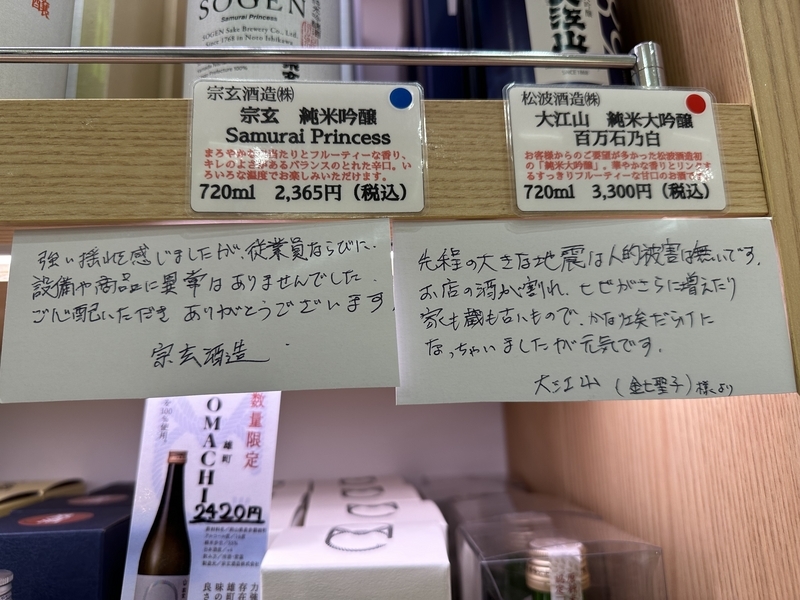 SOGEN
Samurai Princess
SOGEN Sake Brewery Co., Ltd.
Since 1768 in Noto Ishikawa
宗玄酒造㈱
宗玄 純米吟醸
Samurai Princess
まろやかな口当たりとフルーティーな香り、
キレのよさがあるバランスのとれた辛口。い
ろいろな温度でお楽しみいただけます。
720ml 2,365円（税込）
松波酒造㈱
大江山 純米大吟醸
百万石乃白
お客様からのご要望が多かった松波酒造初
の「純米大吟醸」。華やかな香りとリンクす
るすっきりフルーティーな甘口のお酒で
720ml 3,300円（税込）
強い揺れを感じましたが、従業員ならびに、
設備や商品に異常はありませんでした。
ご心配いただき ありがとうございます
宗玄酒造
先程の大きな地震は人的被害は無いです。
お店の酒が割れ、ヒビがさらに増えたり
家も蔵も古いもので、かなり埃だらけに
なっちゃいましたが元気です。
大江山（金七聖子）様より
数量限定
OMACHI
雄町
2420円